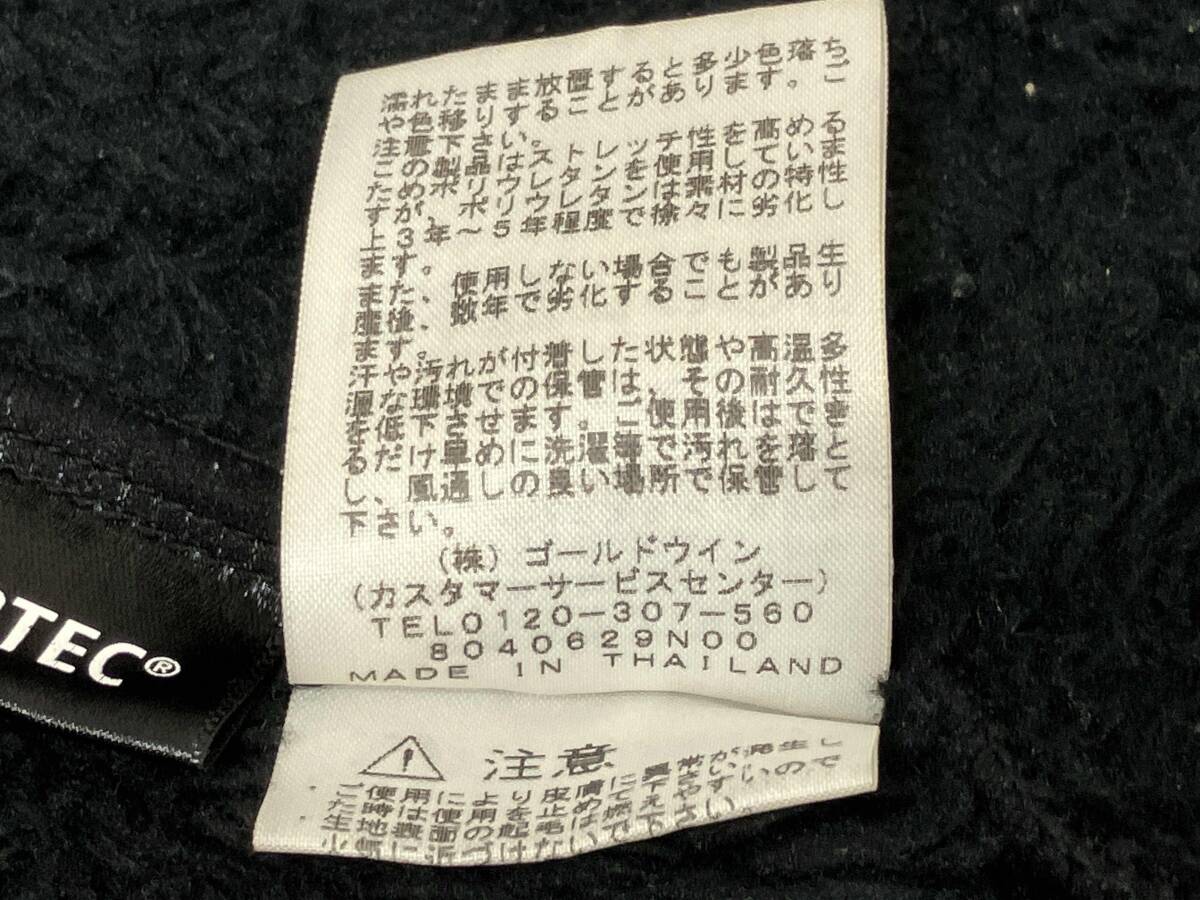 濡れたまま放置すると多少色落ち
や色移りすることがあります。ご
注意下さい。
この製品はストレッチ性を高める
ためポリウレタンを使用していま
すが、ポリウレタンは素材の特性
上3年~5年程度で徐々に劣化し
ます。
また、使用しない場合でも製品生
産後、数年で劣化することがあり
ます。
汗や汚れが付着した状態や高温多
湿な環境での保管は、その耐久性
を低下させます。ご使用後はできる
だけ単めに洗濯等で汚れを落と
し、風通しの良い場所で保管して
下さい。
(株)ゴールドウイン
(カスタマーサービスセンター)
TEL0120-307-560
8040629N00
MADE IN THAILAND
TEC®
注意